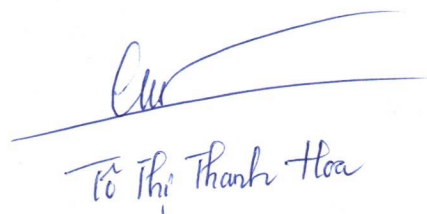 Tô Thị Thanh Hoa